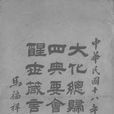 中華民國十八年
大化總歸
四典要會
醒世箴言
馬福祥